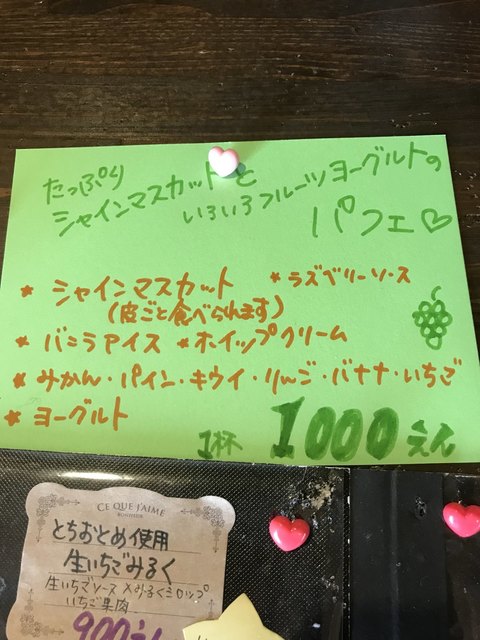 たっぷり
シャインマスカットと
いろいろフルーツヨーグルトの
パフェ♡
* シャインマスカット * ラズベリーソース
(皮ごと食べられます)
* バニラアイス * ホイップクリーム
* みかん・パイン・キウイ・りんご・バナナ・いちご
* ヨーグルト
1杯 1000えん
CE QUE J'AIME
とちおとめ使用
生いちごみるく
生いちごソース×みるくシロップ
いちご果肉
900えん